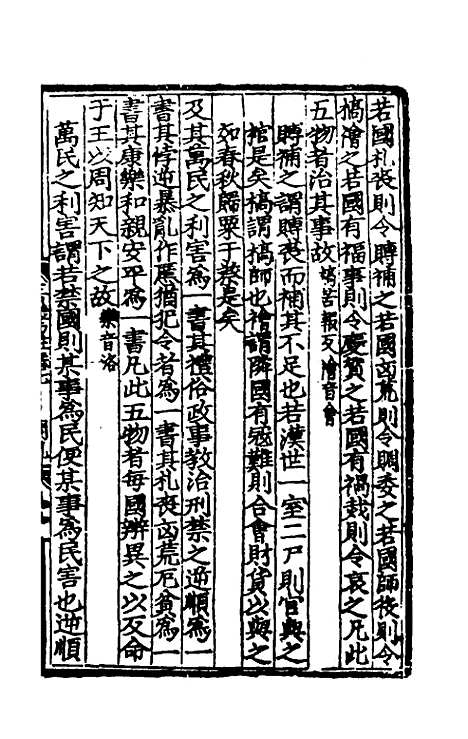 若國札喪則令賻補之若國凶荒則令賙委之若國師役則令
槁禬之若國有福事則令慶賀之若國有禍烖則令哀之凡此
五物者治其事故槁苦報反禬音會
賻補之謂賻喪而補其不足也若漢世一室二尸則官與之
棺是矣槁謂槁師也禬謂隣國有宼難則合會財貨以與之
如春秋歸粟于蔡是矣
及其萬民之利害為一書其禮俗政事教治刑禁之逆順為一
書其悖逆暴亂作慝猶犯令者為一書其札喪凶荒厄貧為一
書其康樂和親安平為一書凡此五物者每國辨異之以反命
于王以周知天下之故樂音洛
萬民之利害謂若禁國則某事為民便某事為民害也逆順